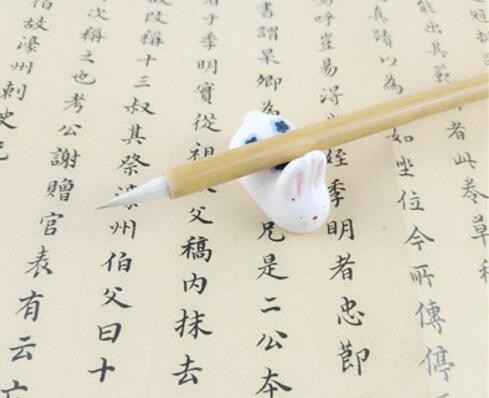 出其範者此卷草
真蹟以為如坐位今所傳停
呼豈易得姪季明者忠節
書謂杲卿為兄是二公本
于季明實從祖父稿內抹去
改稱十三叔其祭濠州伯父曰十
次稱之也考公謝贈官表有云
故濠州刺史